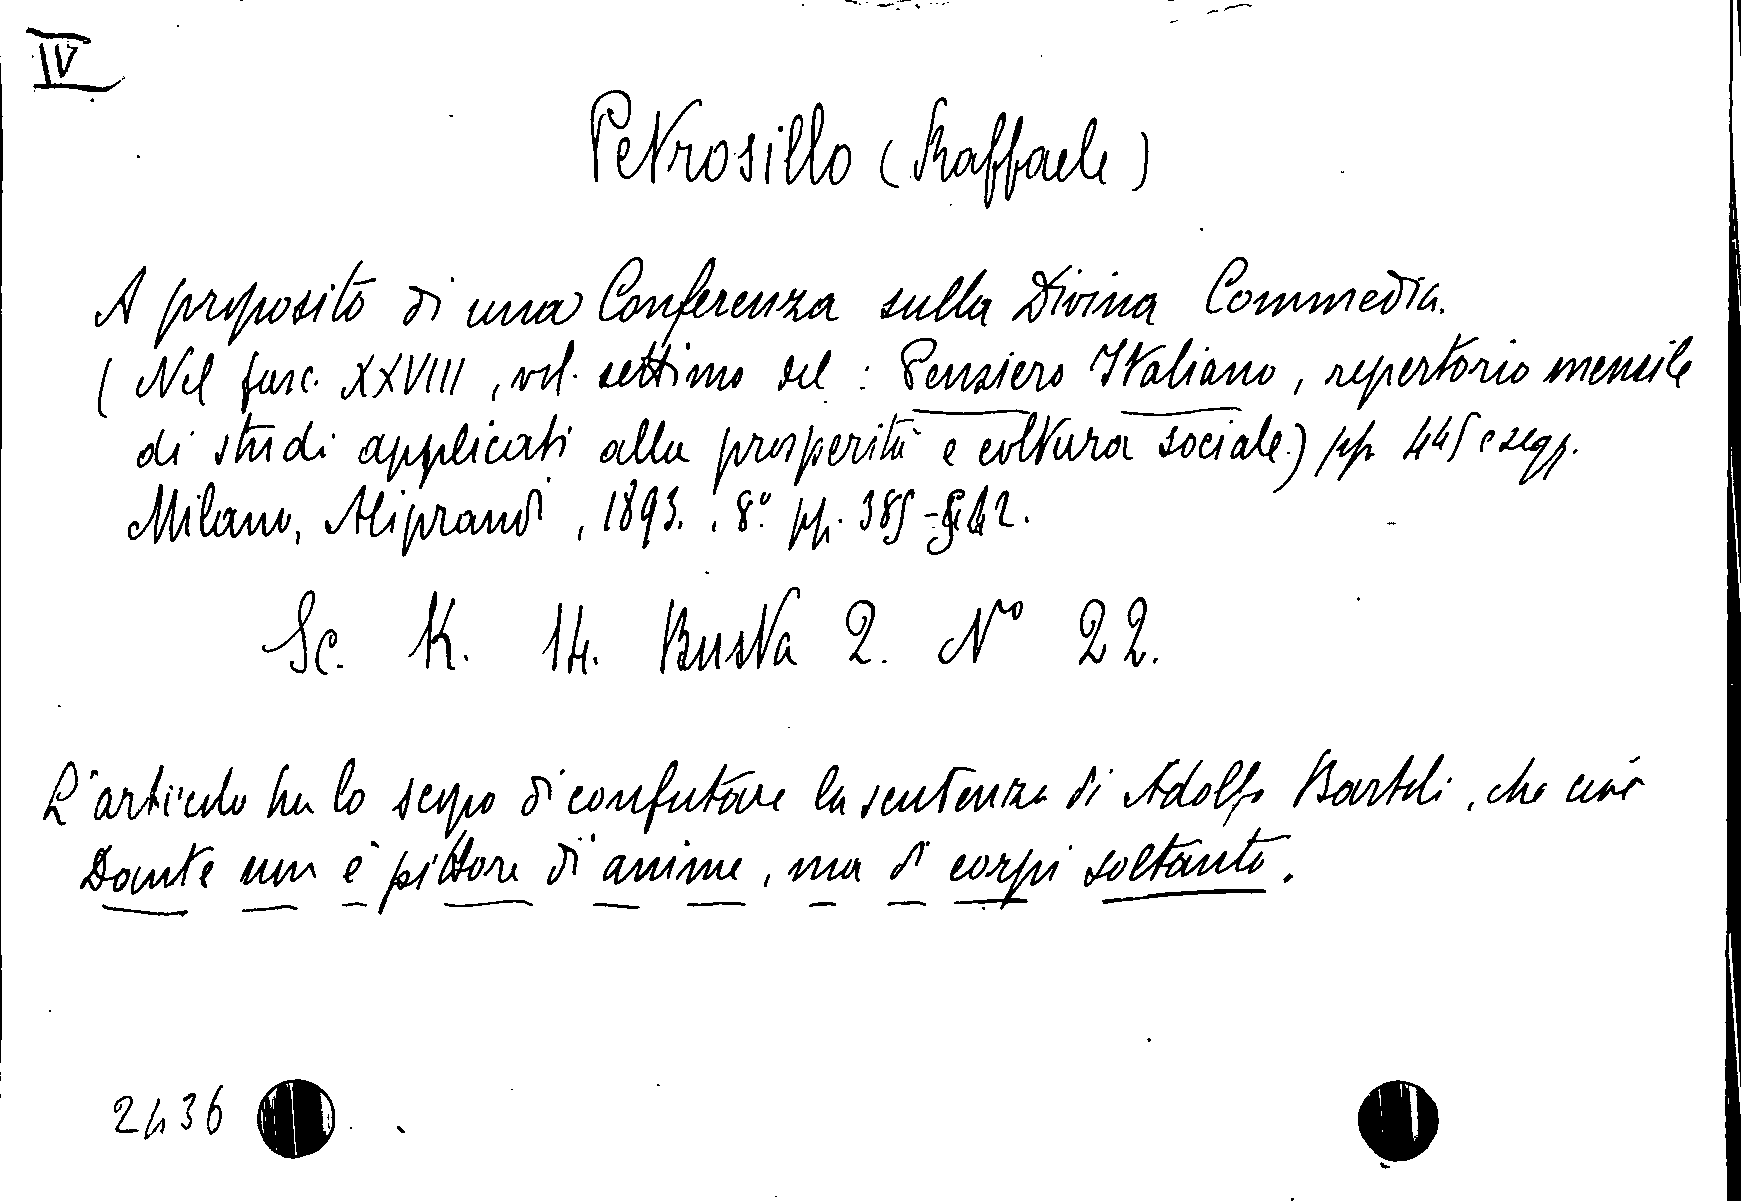 IV
Petrosillo (Raffaele)
A proposito di una Conferenza sulla Divina Commedia.
(Nel fasc. XXVIII, vol. settimo del: Pensiero Italiano, repertorio mensile
di studi applicati alla prosperità e coltura sociale) pp 445 e segg.
Milano, Aliprandi, 1893. 8° pp. 385-512.
Sc. K. 14. Busta 2. N° 22.
L'articolo ha lo scopo di confutare la sentenza di Adolfo Bartoli, che cioè
Dante non è pittore di anime, ma di corpi soltanto.
2436